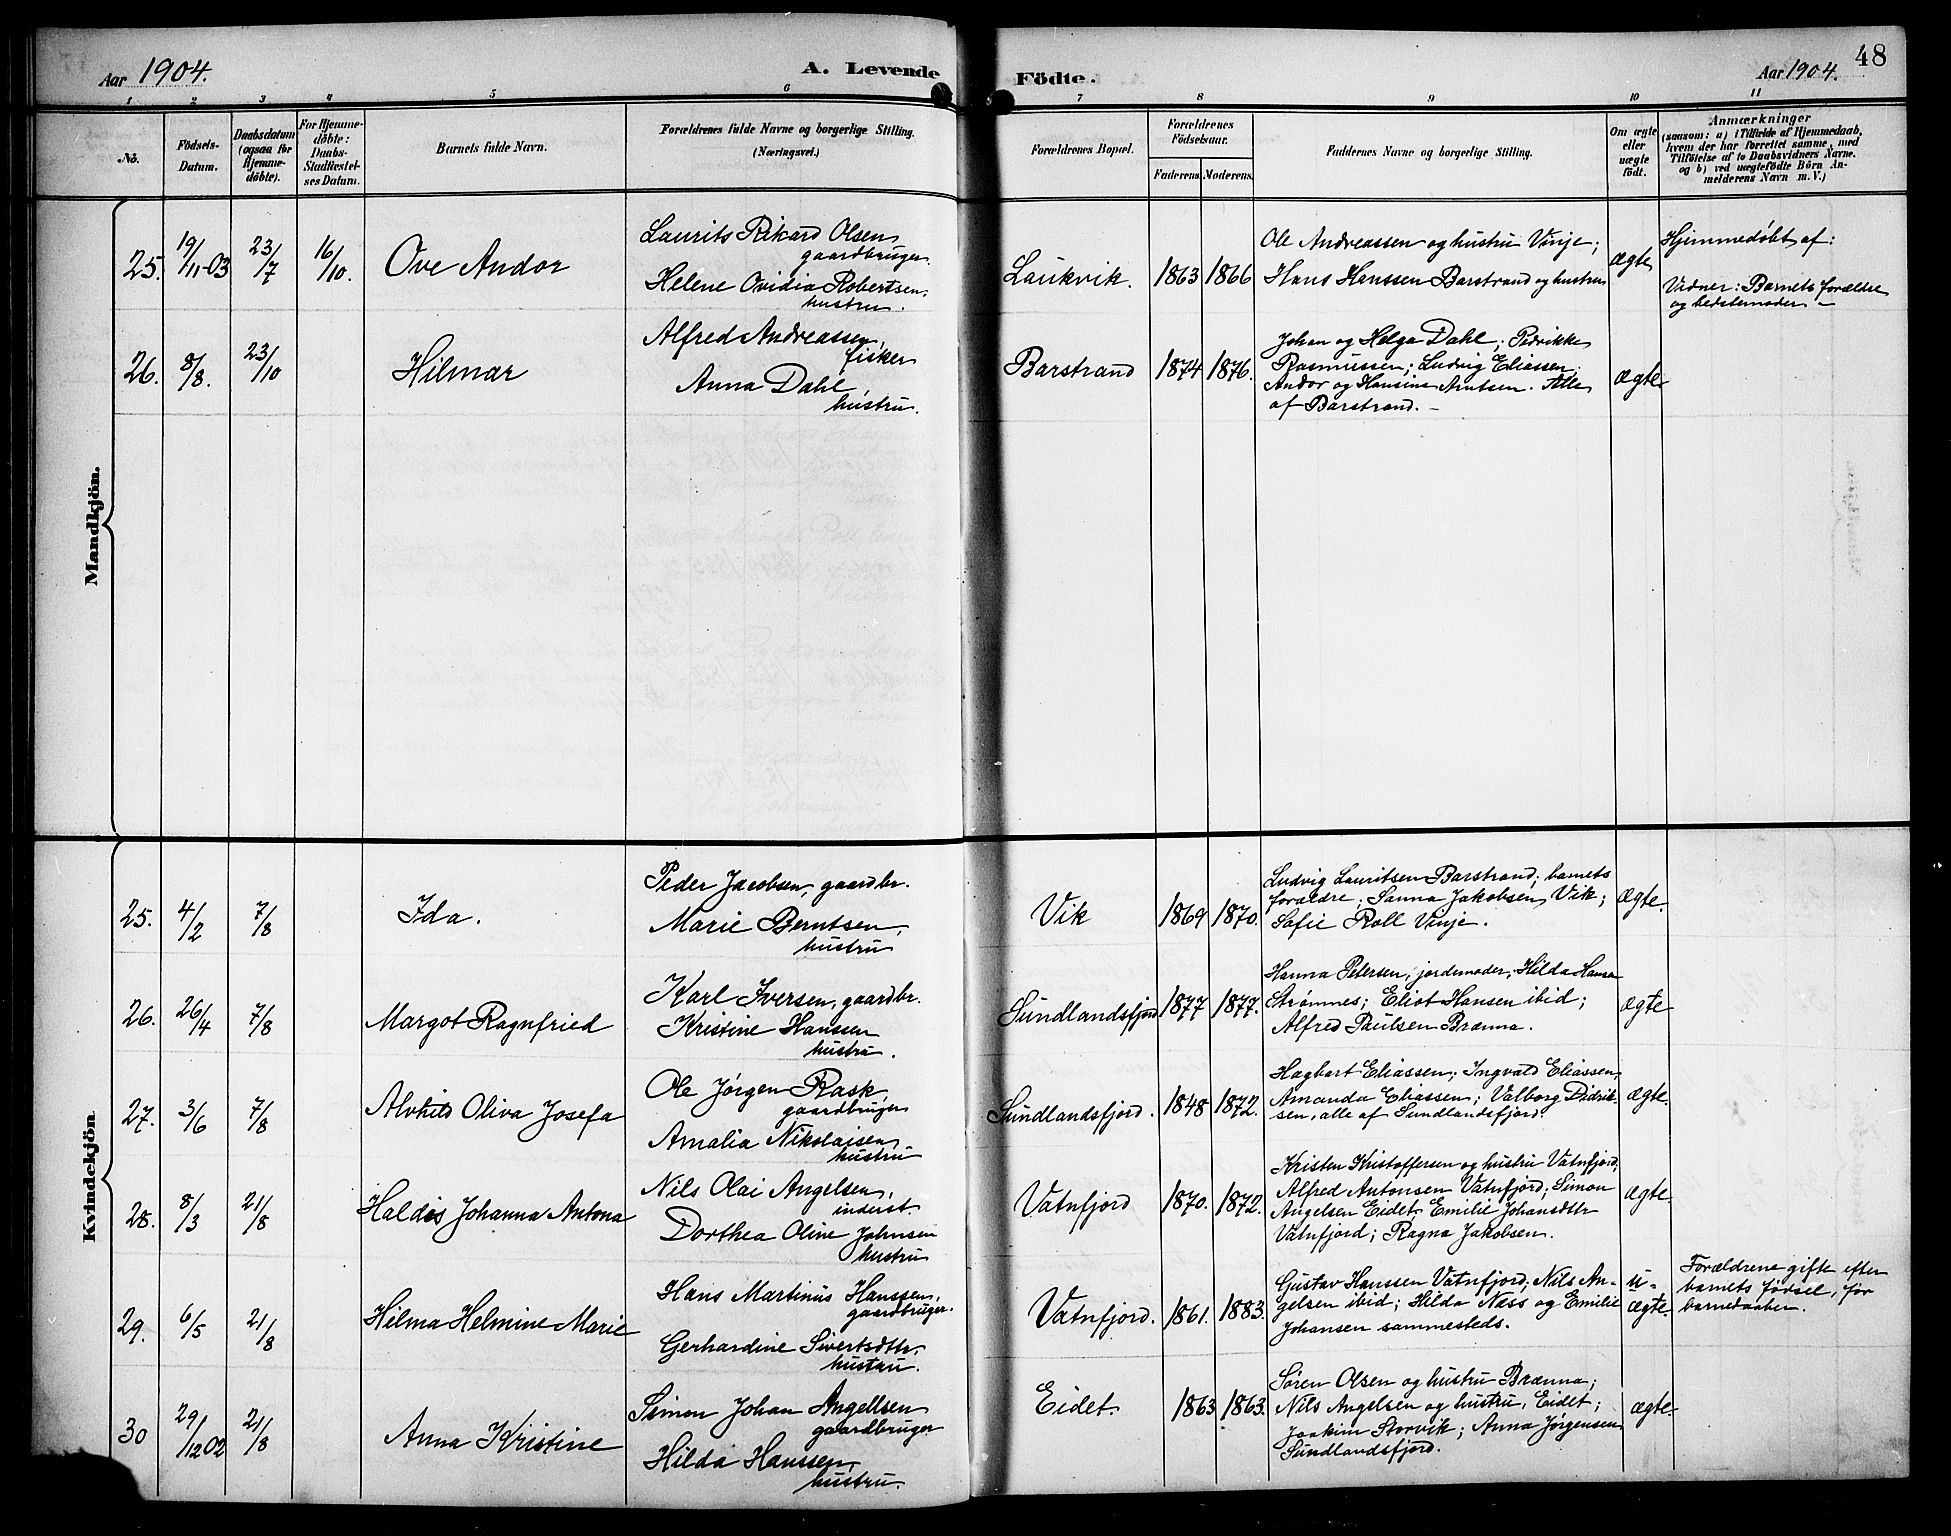 48
Aar 1904. A. Levende Födte. Aar 1904.
1 2 3 4 5 6 7 8 9 10 11
No.
Födsels-
Datum.
Daabsdatum
(ogsaa for
Hjemme-
döbte).
For Hjemme-
döbte:
Daabs-
Stadfæstel-
ses Datum.
Barnets fulde Navn.
Forældrenes fulde Navne og borgerlige Stilling.
(Næringsvei.)
Forældrenes Bopæl.
Forældrenes
Födselsaar.
Faderens. Moderens.
Faddernes Navne og borgerlige Stilling.
Om ægte
eller
uægte
født.
Anmærkninger
(saasom: a) i Tilfælde af Hjemmedaab,
hvem der har forrettet samme, med
Tilföielse af to Daabsvidners Navne.
og b) ved uægtefödte Börn An-
melderens Navn m. V.)
Mandkjön.
25. 19/11-03 23/7 16/10. Ove Andor
Laurits Rikard Olsen
gaardbruger.
Helene Ovidia Robertsen,
hustru.
Laukvik. 1863 1866
Ole Andreassen og hustru Vinje;
Hans Hanssen Barstrand og hustru
ægte
Hjemmedøbt af:
Vidner: Barnets forældre
og bedstemoder –
26. 8/8. 23/10 Hilmar
Alfred Andreassen,
fisker
Anna Dahl,
hustru.
Barstrand 1874 1876.
Johan og Helga Dahl; Pedrikke
Rasmussen; Ludvig Eliassen;
Andor og Hansine Arntsen. Alle
af Barstrand. –
ægte
Kvindekjön.
25. 4/2 7/8 Ida.
Peder Jacobsen, gaardbr.
Marie Berntsen,
hustru
Vik 1869 1870.
Ludvig Lauritsen Barstrand; barnets
forældre; Sanna Jakobsen Vik;
Sofie Roll Vinje.
ægte.
26. 26/4 7/8 Margot Ragnfried
Karl Iversen, gaardbr.
Kristine Hanssen
hustru.
Sundlandsfjord 1877 1877.
Hanna Petersen, jordemoder, Hilda Hansen
Strømnes; Eliot Hansen ibid;
Alfred Paulsen Brænna.
ægte
27. 3/6 7/8 Alvhild Oliva Josefa
Ole Jørgen Rask,
gaardbruger
Amalia Nikolaisen
hustru
Sundlandsfjord. 1848 1872.
Hagbart Eliassen; Ingvald Eliassen,
Amanda Eliassen; Valborg Didrik-
sen, alle af Sundlandsfjord.
ægte.
28. 8/3 21/8 Haldis Johanna Antona
Nils Olai Angelsen,
inderst
Dorthea Oline Johnsen
hustru
Vatnfjord 1870. 1872.
Kristen Kristoffersen og hustru Vatnfjord,
Alfred Antonsen Vatnfjord; Simon
Angelsen Eidet Emilie Johansdtr
Vatnfjord; Ragna Jakobsen.
ægte.
29. 6/5 21/8 Hilma Helmine Marie
Hans Martinus Hanssen,
gaardbruger.
Gerhardine Sivertsdtr.
hustru.
Vatnfjord. 1861. 1883.
Gustav Hanssen Vatnfjord; Nils An-
gelsen ibid; Hilda Næss og Emilie
Johansen sammesteds.
u-
ægte.
Forældrene gifte efter
barnets fødsel, før
barnedaaben.
30 29/12 02 21/8 Anna Kristine
Simon Johan Angellsen
gaardbruger
Hilda Hanssen,
hustru.
Eidet. 1863 1863.
Søren Olsen og hustru Brænna;
Nils Angelsen og hustru, Eidet;
Joakim Storvik; Anna Jørgensen
Sundlandsfjord.
ægte.